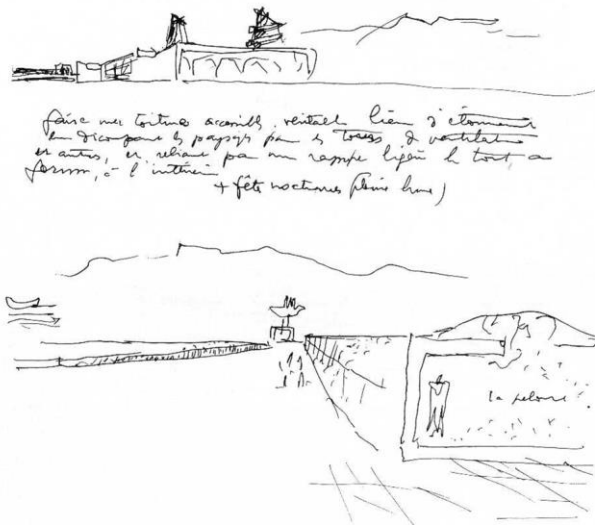 faire mes toitures accessib. lieu d'étonnement
en découpant les paysages par les tours de ventilation
et autres, en reliant par une rampe légère le tout, au
forum, à l'intérieur
+ fête nocturnes (pleine lune)
la pelouse